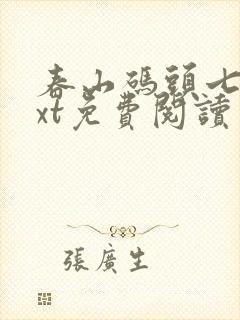 春山碼頭七
xt免費閱讀
張廣生